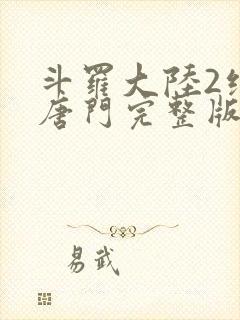 斗羅大陸2
唐門完整版
易武